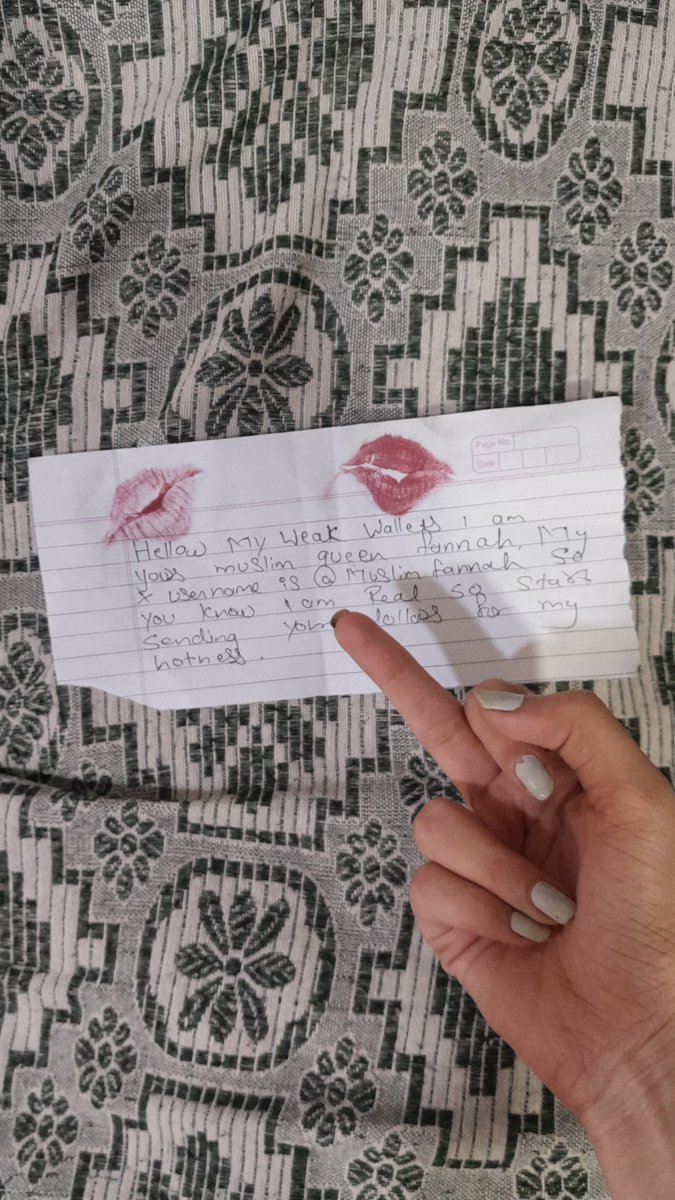 Page No.
Date
Hellow My Weak Wallets I am
yours muslim queen fannah, My
X username is @Muslimfannah So
you know I am Real so start
Sending your dollars for my
hotness.